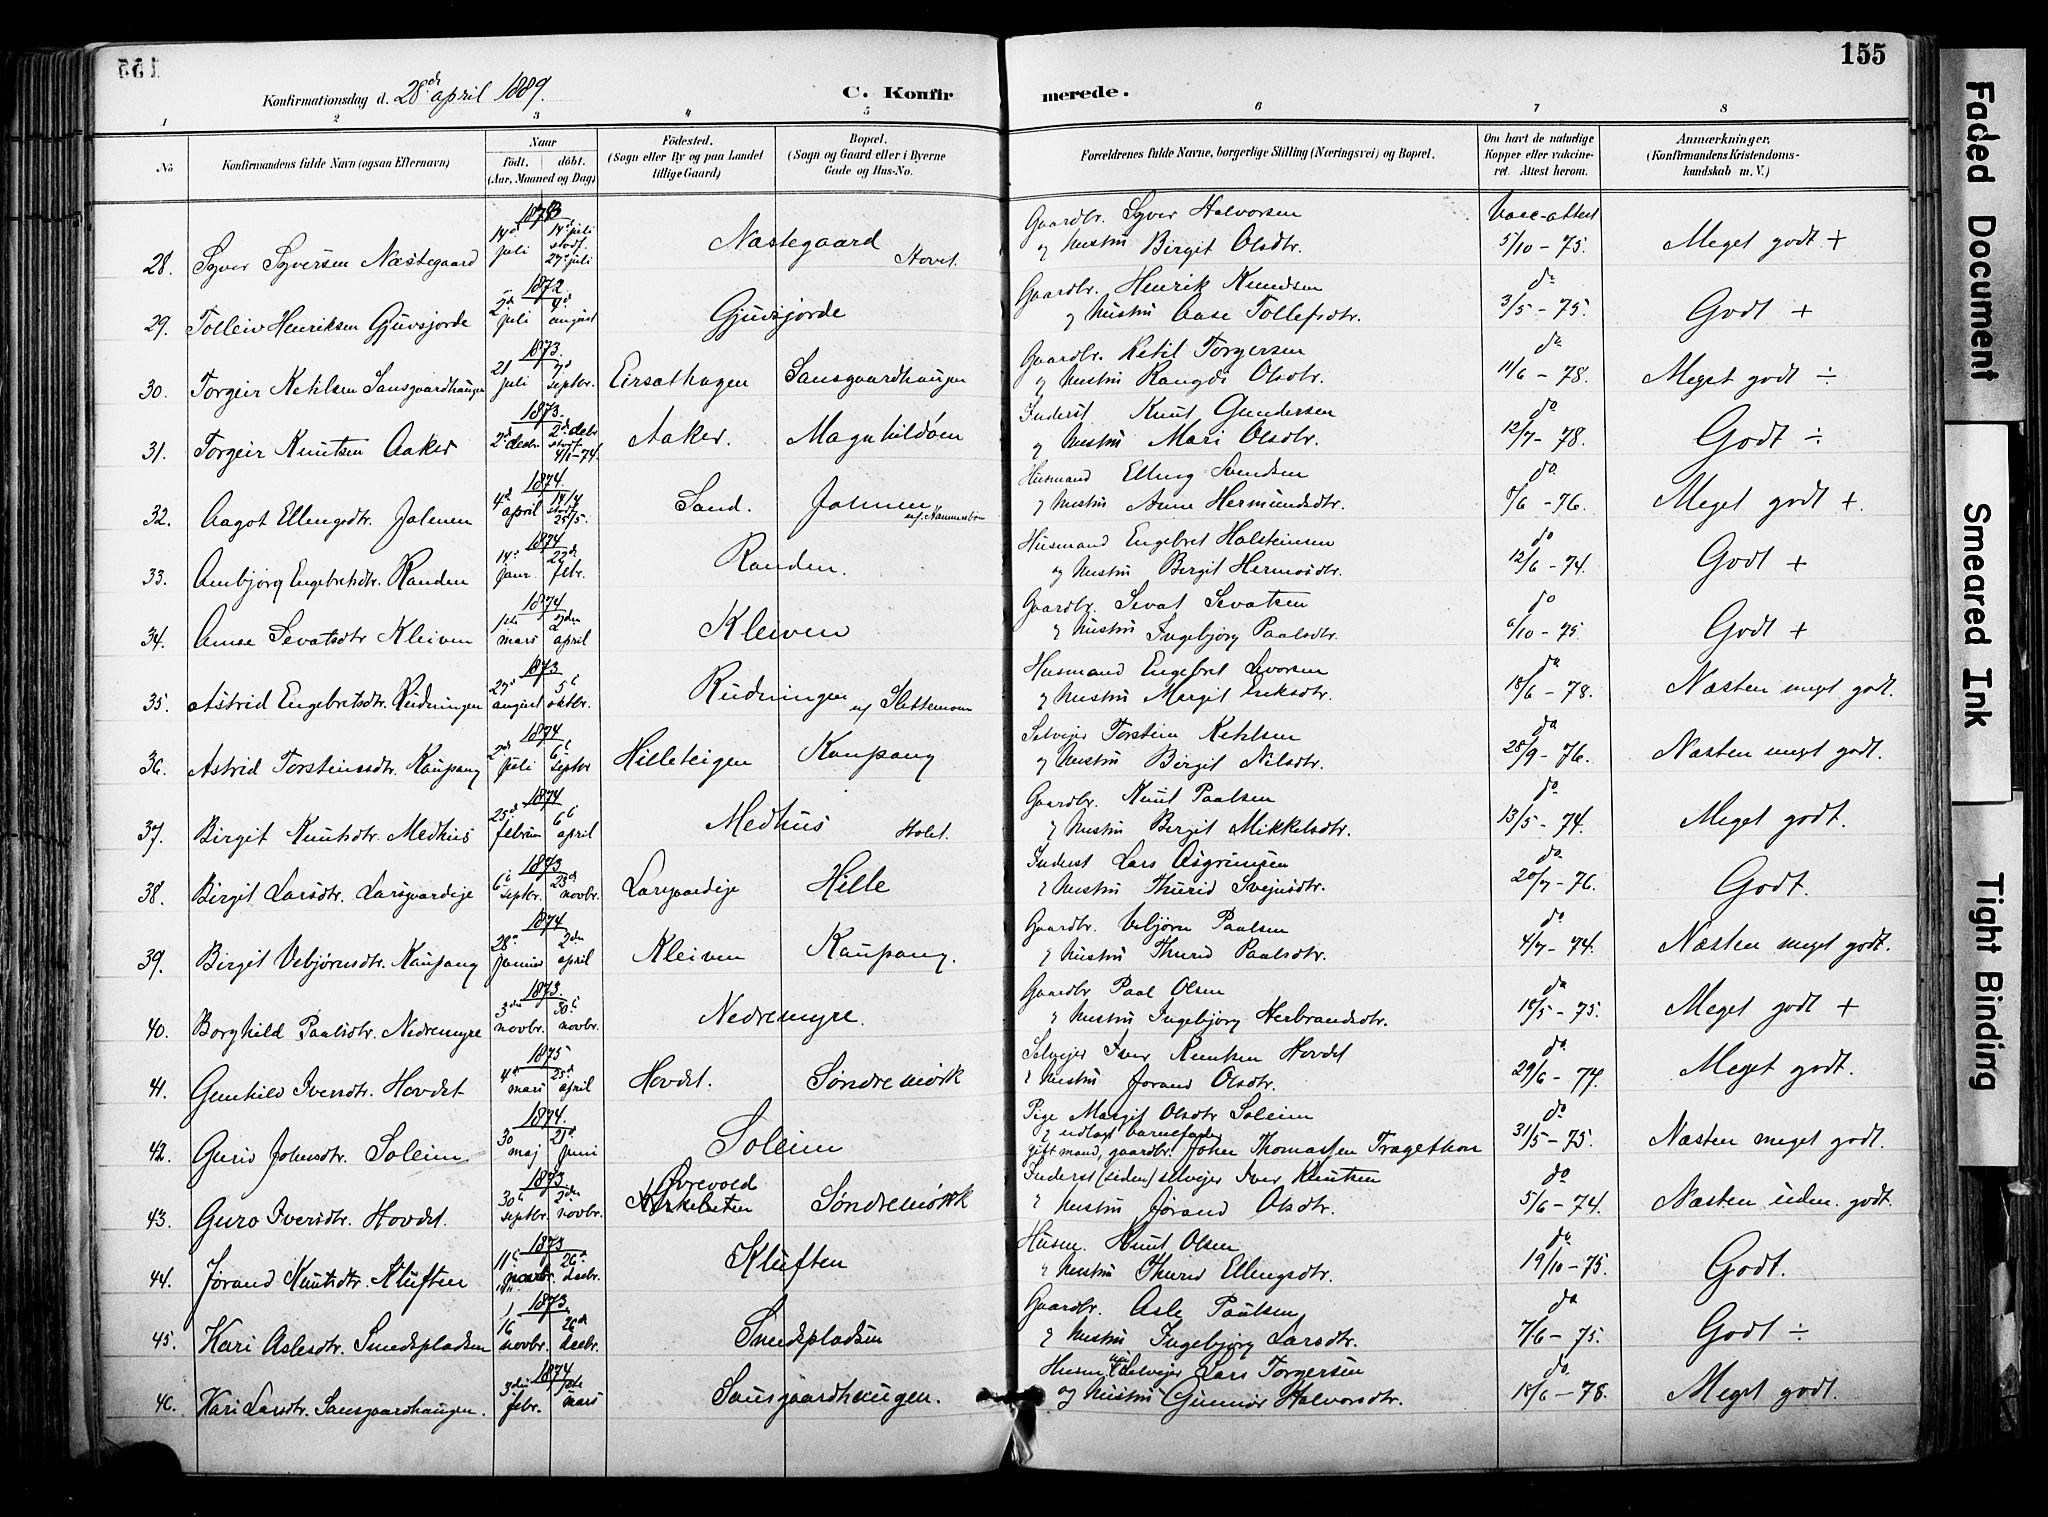 155
Konfirmationsdag d. 28de april 1889.
C. Konfirmerede.
1 2 3 4 5 6 7 8
No
Konfirmandens fulde Navn (ogsaa Efternavn)
Naar
födt. döbt.
(Aar, Maaned og Dag)
Födested.
(Sogn eller By og paa Landet
tillige Gaard)
Bopæl.
(Sogn og Gaard eller i Byerne
Gade og Hus-No.
Forældrenes fulde Navne, borgerlige Stilling (Næringsvei) og Bopæl.
Om havt de naturlige
Kopper eller vakcine-
ret. Attest herom.
Anmærkninger,
(Konfirmandens Kristendoms-
kundskab m. V.)
28. Syver Syversen Næstegaard 1873 14de juli 14de juli stadf. 27de juli Næstegaard Hovet. Gaardbr. Syver Halvorsen Vacc-attest
og Hustru Birgit Olsdtr. 5/10 - 75. Meget godt +
29. Tolleiv Henriksen Gjuvsjorde 1872 2de juli 4de august Gjuvsjorde Gaardbr. Henrik Knudsen do
og Hustru Aase Tollefsdtr. 3/5 - 75. Godt +
30. Torgeir Ketilsen Sansgaardhaugen 1873. 21 juli 7de septbr. Eirsathagen Sansgaardhaugen Gaardbr. Ketil Torgersen do
og Hustru Rangdi Olsdtr. 11/6 - 78. Meget godt ÷
31. Torgeir Knutsen Aaker 1873. 2de decbr. 2de decbr stadf. 4/1-74. Aaker. Magnhildøen Inderst Knut Gundersen do
og Hustru Mari Olsdtr. 12/7 - 78. Godt ÷
32. Aagot Ellingsdtr. Jolmen 1874. 4de april 14/4 stadf 25/5. Sand. Jolmen Husmand Elling Svendsen do
og Hustru Anne Hermundsdtr. /6 - 76. Meget godt +
33. Ambjørg Engebretsdtr. Randen 1874 14de janr. 22de febr. Randen. Husmand Engebret Holsteinsen do
og Hustru Birgit Hermosdtr. 12/6 - 74. Godt +
34. Anne Sevatsdtr Kleiven 1874 1ste mars 2den april Kleiven Gaardbr. Sevat Sevatsen do
og Hustru Ingebjørg Paalsdtr. 6/10 - 75. Godt +
35. Astrid Engebretsdtr. Rudningen 1873 27de august 5te oktbr. Rudningen u/ Slettemoen Husmand Engebret Sevorsen do
og Hustru Margit Eriksdtr. 18/6 - 78. Næsten meget godt.
36. Astrid Torsteinsdtr. Kaupang 1874 2de juli 6te septbr Hilleteigen Kaupang Selvejer Torstein Ketilsen do
og Hustru Birgit Nilsdtr. 28/9 - 76. Næsten meget godt.
37. Birgit Knutsdtr. Medhus 1874 25de februar 6te april Medhus Holet. Gaardbr. Knut Paalsen do
og Hustru Birgit Mikkelsdtr. 13/5 - 74. Meget godt.
38. Birgit Larsdtr. Larsgaardeje 1873 6te septbr. 23de novbr. Larsgaardeje Hille Inderst Lars Asgrimsen do
og Hustru Thurid Svejnsdtr. 20/7 - 76. Godt.
39. Birgit Vebjørnsdtr. Kaupang 1874 28de januar 2den april Kleiven Kaupang. Gaardbr. Vebjørn Paalsen do
og Hustru Thurid Paalsdtr. 4/7 - 74. Næsten meget godt.
40. Borghild Paalsdtr. Nedremyre 1873. 3die novbr. 30te novbr. Nedremyre. Gaardbr Paal Olsen do
og Hustru Ingebjørg Herbrandsdtr. 18/5 - 75. Meget godt +
41. Gunhild Iversdtr. Hovdet 1875 4de mars 25de april Hovdet. Søndremørk Selvejer Iver Knutsen Hovdet do
og Hustru Jorand Olsdtr. 29/6 - 77. Meget godt.
42. Gurid Johnsdtr. Soleim 1874. 30 maj 21de juni Soleim Pige Margit Olsdtr Soleim do
og udlagt barnefader
gift mand, gaardbr. John Thomassen Tragethon 31/5 - 75. Næsten meget godt.
43. Guro Iversdtr. Hovdet. 1873. 30te septbr. 2den novbr. Øvrevold Søndremørk Inderst (siden) selvejer Iver Knutsen do
og Hustru Jorand Olsdtr. 5/6 - 74. Næsten uden. godt.
44. Jorand Knutsdtr. Kluften 1873 11te novbr. 26de decbr. Kluften Husm. Knut Olsen do
og Hustru Thurid Ellingsdtr. 19/10 - 75. Godt.
45. Kari Aslesdtr. Smedspladsen 1873. 16 novbr. 26de decbr. Smedspladsen Gaardbr. Asle Paulsen do
og Hustru Ingebjørg Larsdtr. 7/6 - 75. Godt ÷
46. Kari Larsdtr. Sansgaardhaugen. 1874 3die febr. mars Sansgaardhaugen. Husm. Selvejer Lars Torgersen do
og Hustru Gunnor Halvorsdtr. 18/6 - 78. Meget godt.
Faded Document
Smeared Ink
Tight Binding